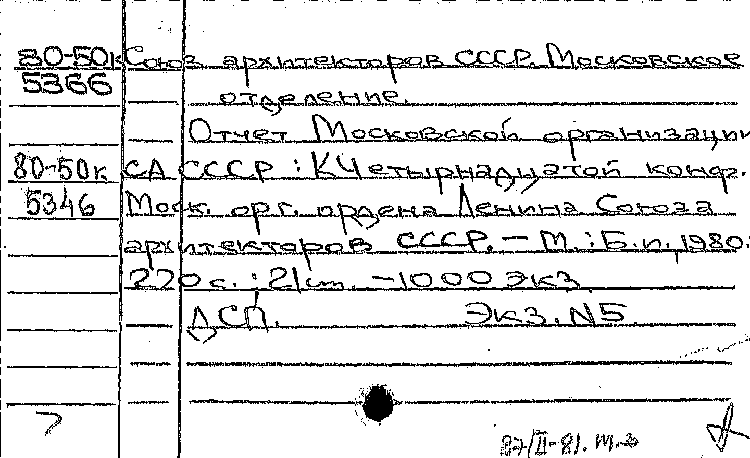 80-50к Союз архитекторов СССР. Московское
5366 отделение.
Отчет Московской организации
80-50к СА СССР : К Четырнадцатой конф.
5346 Моск. орг. ордена Ленина Союза
архитекторов СССР. — М. : Б.и., 1980.
220 с. ; 21 см. — 1000 экз.
ДСП. Экз. N5